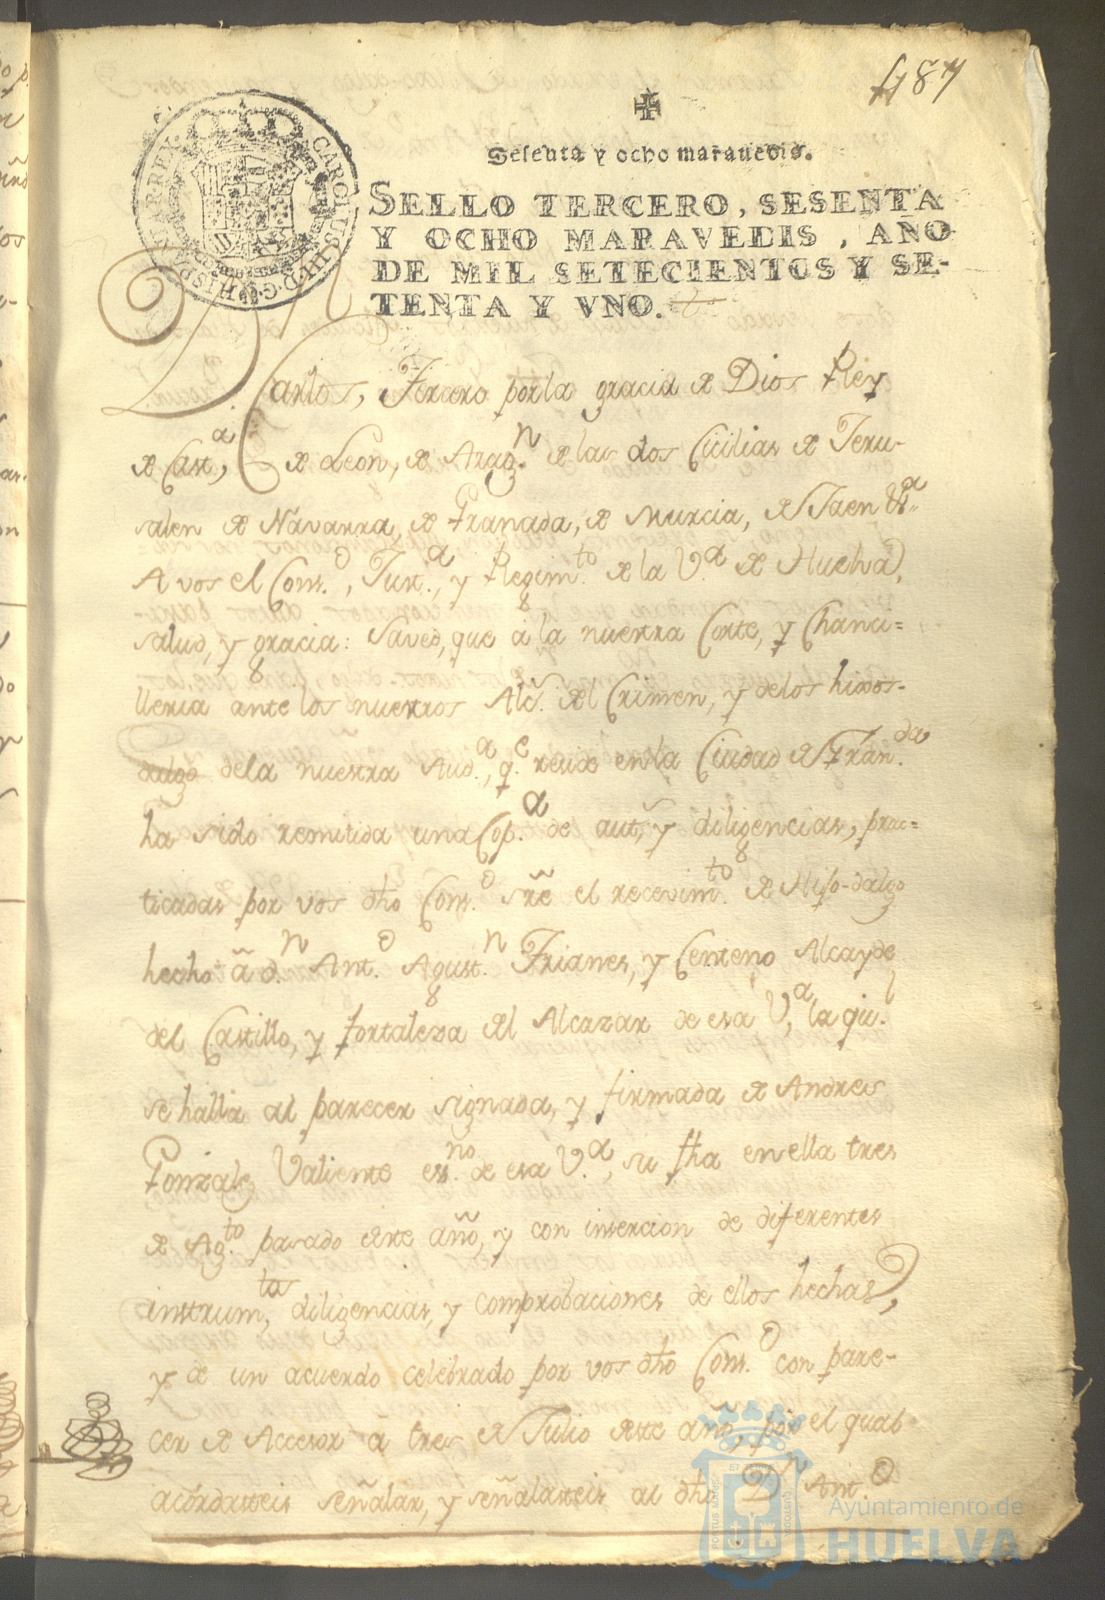 487
Sesenta y ocho marauedis.
SELLO TERCERO, SESENTA
Y OCHO MARAVEDIS, AÑO
DE MIL SETECIENTOS Y SE-
TENTA Y VNO.
CAROLUS III D. G. HISPANIAR REX
Carlos, Tercero por la gracia de Dios Rey
de Cast.ª, de Leon, de Arag.n de las dos Cicilias de Jeru-
salen de Navarra, de Granada, de Murcia, de Jaen &.ª
A vos el Cons.º, Just.ª, y Regim.to de la V.ª de Huelva,
salud, y gracia: Saved, que à la nuestra Corte, y Chanci=
lleria ante los nuestros Alc.s del Crimen, y de los hixos-
dalgo de la nuestra Aud.ª, q.e reside en la Ciudad de Gran.da
ha sido remitida una Cop.ª de aut.s y diligencias, prac=
ticadas por vos dho Cons.º sre el recevim.to de Hijo-dalgo
hecho â d.n Ant.º Agust.n Frianes, y Centeno Alcayde
del Castillo, y fortaleza del Alcazar de esa V.ª, la qu.l
se halla al parecer signada, y firmada de Andres
Gonzalez Valiente es.no de esa V.ª, su fha en ella tres
de Ag.to pasado deste año, y con insercion de diferentes
instrum.tos, diligencias, y comprobaciones de ellos hechas,
y de un acuerdo celebrado por vos dho Cons.º con pare-
cer de Accesor a tres de Julio deste año, por el qual
acordasteis señalar, y señalasteis al dho D.n Ant.º
Ayuntamiento de
HUELVA